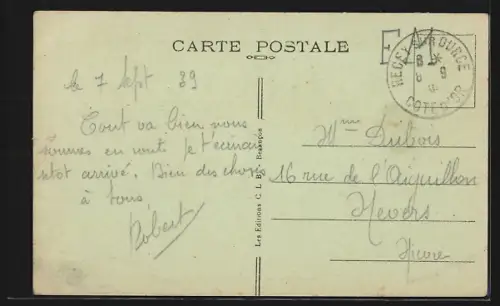 CARTE POSTALE
F.M.
RECEY SUR OURCE
COTE D'OR
le 7 Sept 39
Tout va bien nous
sommes en route je t'écrirai
sitot arrivé. Bien des choses
à tous.
Robert
Les Editions C. L. B. - Besançon
Mme Dubois
16 rue de l'Aiguillon
Nevers
Nièvre